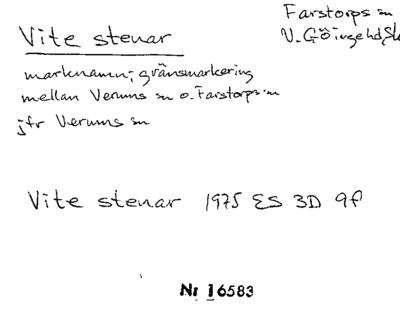 Farstorps sn
Vite stenar
V. Göingehd, Sk
marknamn; gränsmarkering
mellan Verums sn o. Farstorps sn
jfr Verums sn
Vite stenar 1975 ES 3D 9f
Nr 16583